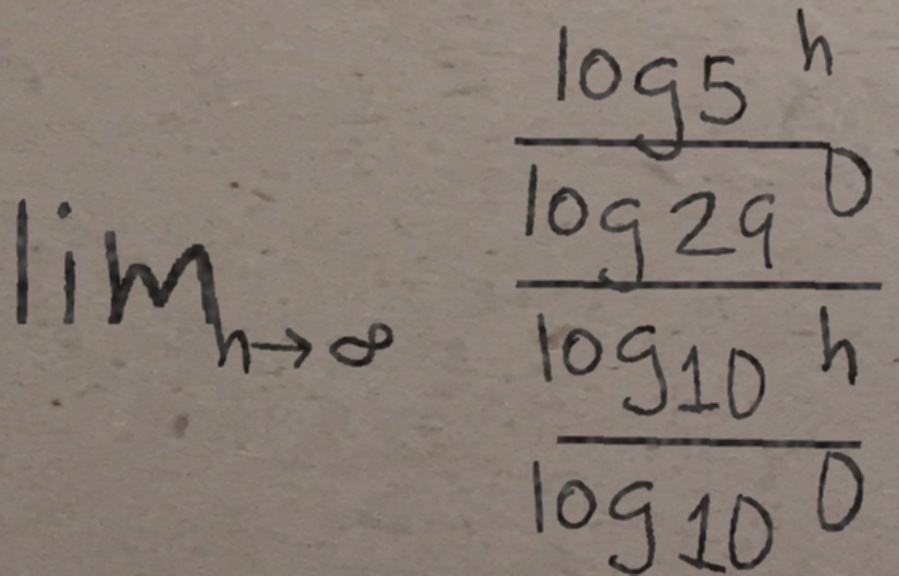 lim h→∞
log5 h
log29 0
log10 h
log10 0